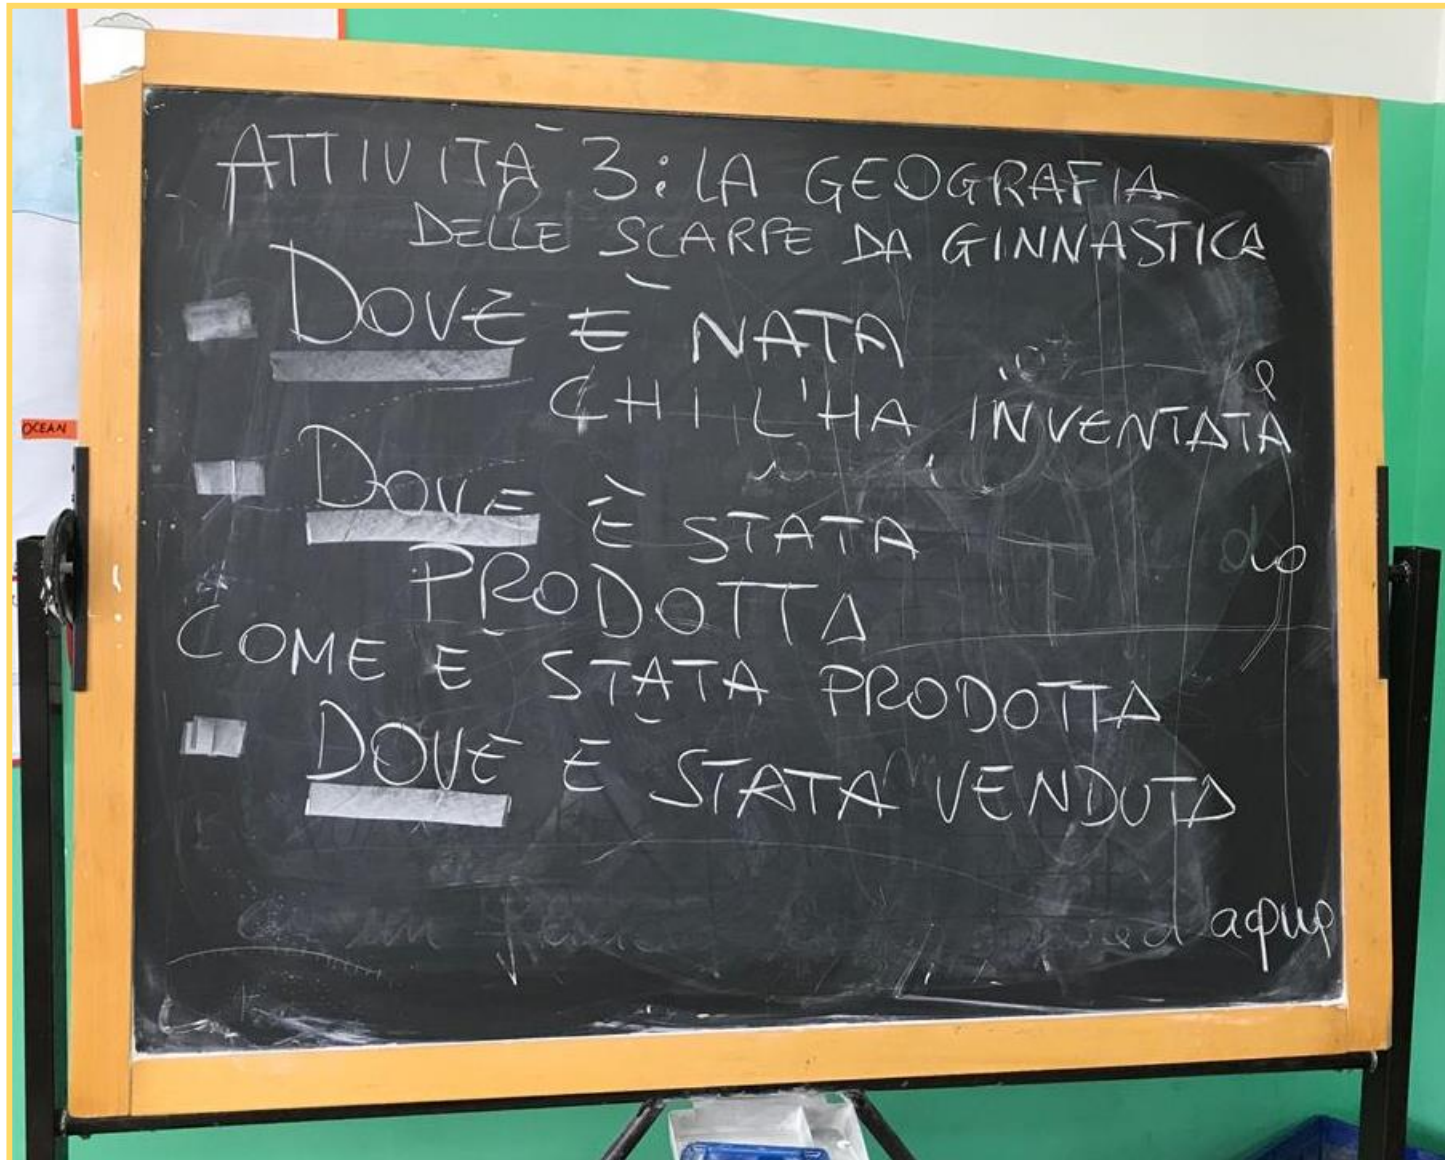 OCEAN
ATTIVITÀ 3: LA GEOGRAFIA
DELLE SCARPE DA GINNASTICA
DOVE È NATA
CHI L'HA INVENTATA
DOVE È STATA
PRODOTTA
COME È STATA PRODOTTA
DOVE È STATA VENDUTA